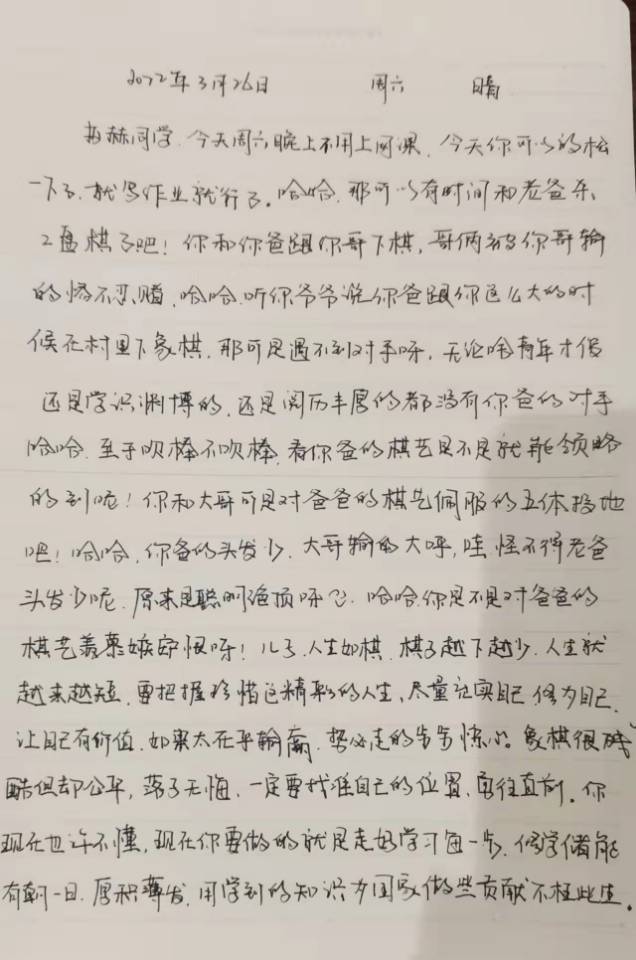 2022年3月26日 周六 晴
赫同学,今天周六晚上不用上网课,今天你可以的松
一下了,就写作业就行了。哈哈,那可以有时间和老爸杀
2盘棋了吧!你和你爸跟你哥下棋,哥俩被你哥输
的惨不忍睹,哈哈,听你爷爷说你爸跟你这么大的时
候在村里下象棋,那可是遇不到对手呀,无论啥青年才俊
还是学识渊博的,还是阅历丰厚的都没有你爸的对手
哈哈,至于吹棒不吹棒,看你爸的棋艺是不是就能领略
的到呢!你和大哥可是对爸爸的棋艺佩服的五体投地
吧!哈哈,你爸的头发少,大哥输的大呼,哇,怪不得老爸
头发少呢,原来是聪明绝顶呀,哈哈,你是不是对爸爸的
棋艺羡慕嫉妒恨呀!儿子,人生如棋,棋子越下越少,人生就
越来越短,要把握珍惜这精彩的人生,尽量充实自己,修为自己,
让自己有价值,如果太在乎输赢,势必走的步步惊心。象棋很残
酷但却公平,落子无悔,一定要找准自己的位置,勇往直前。你
现在也许不懂,现在你要做的就是走好学习每一步,修学储能
有朝一日,厚积薄发,用学到的知识为国家做些贡献不枉此生。